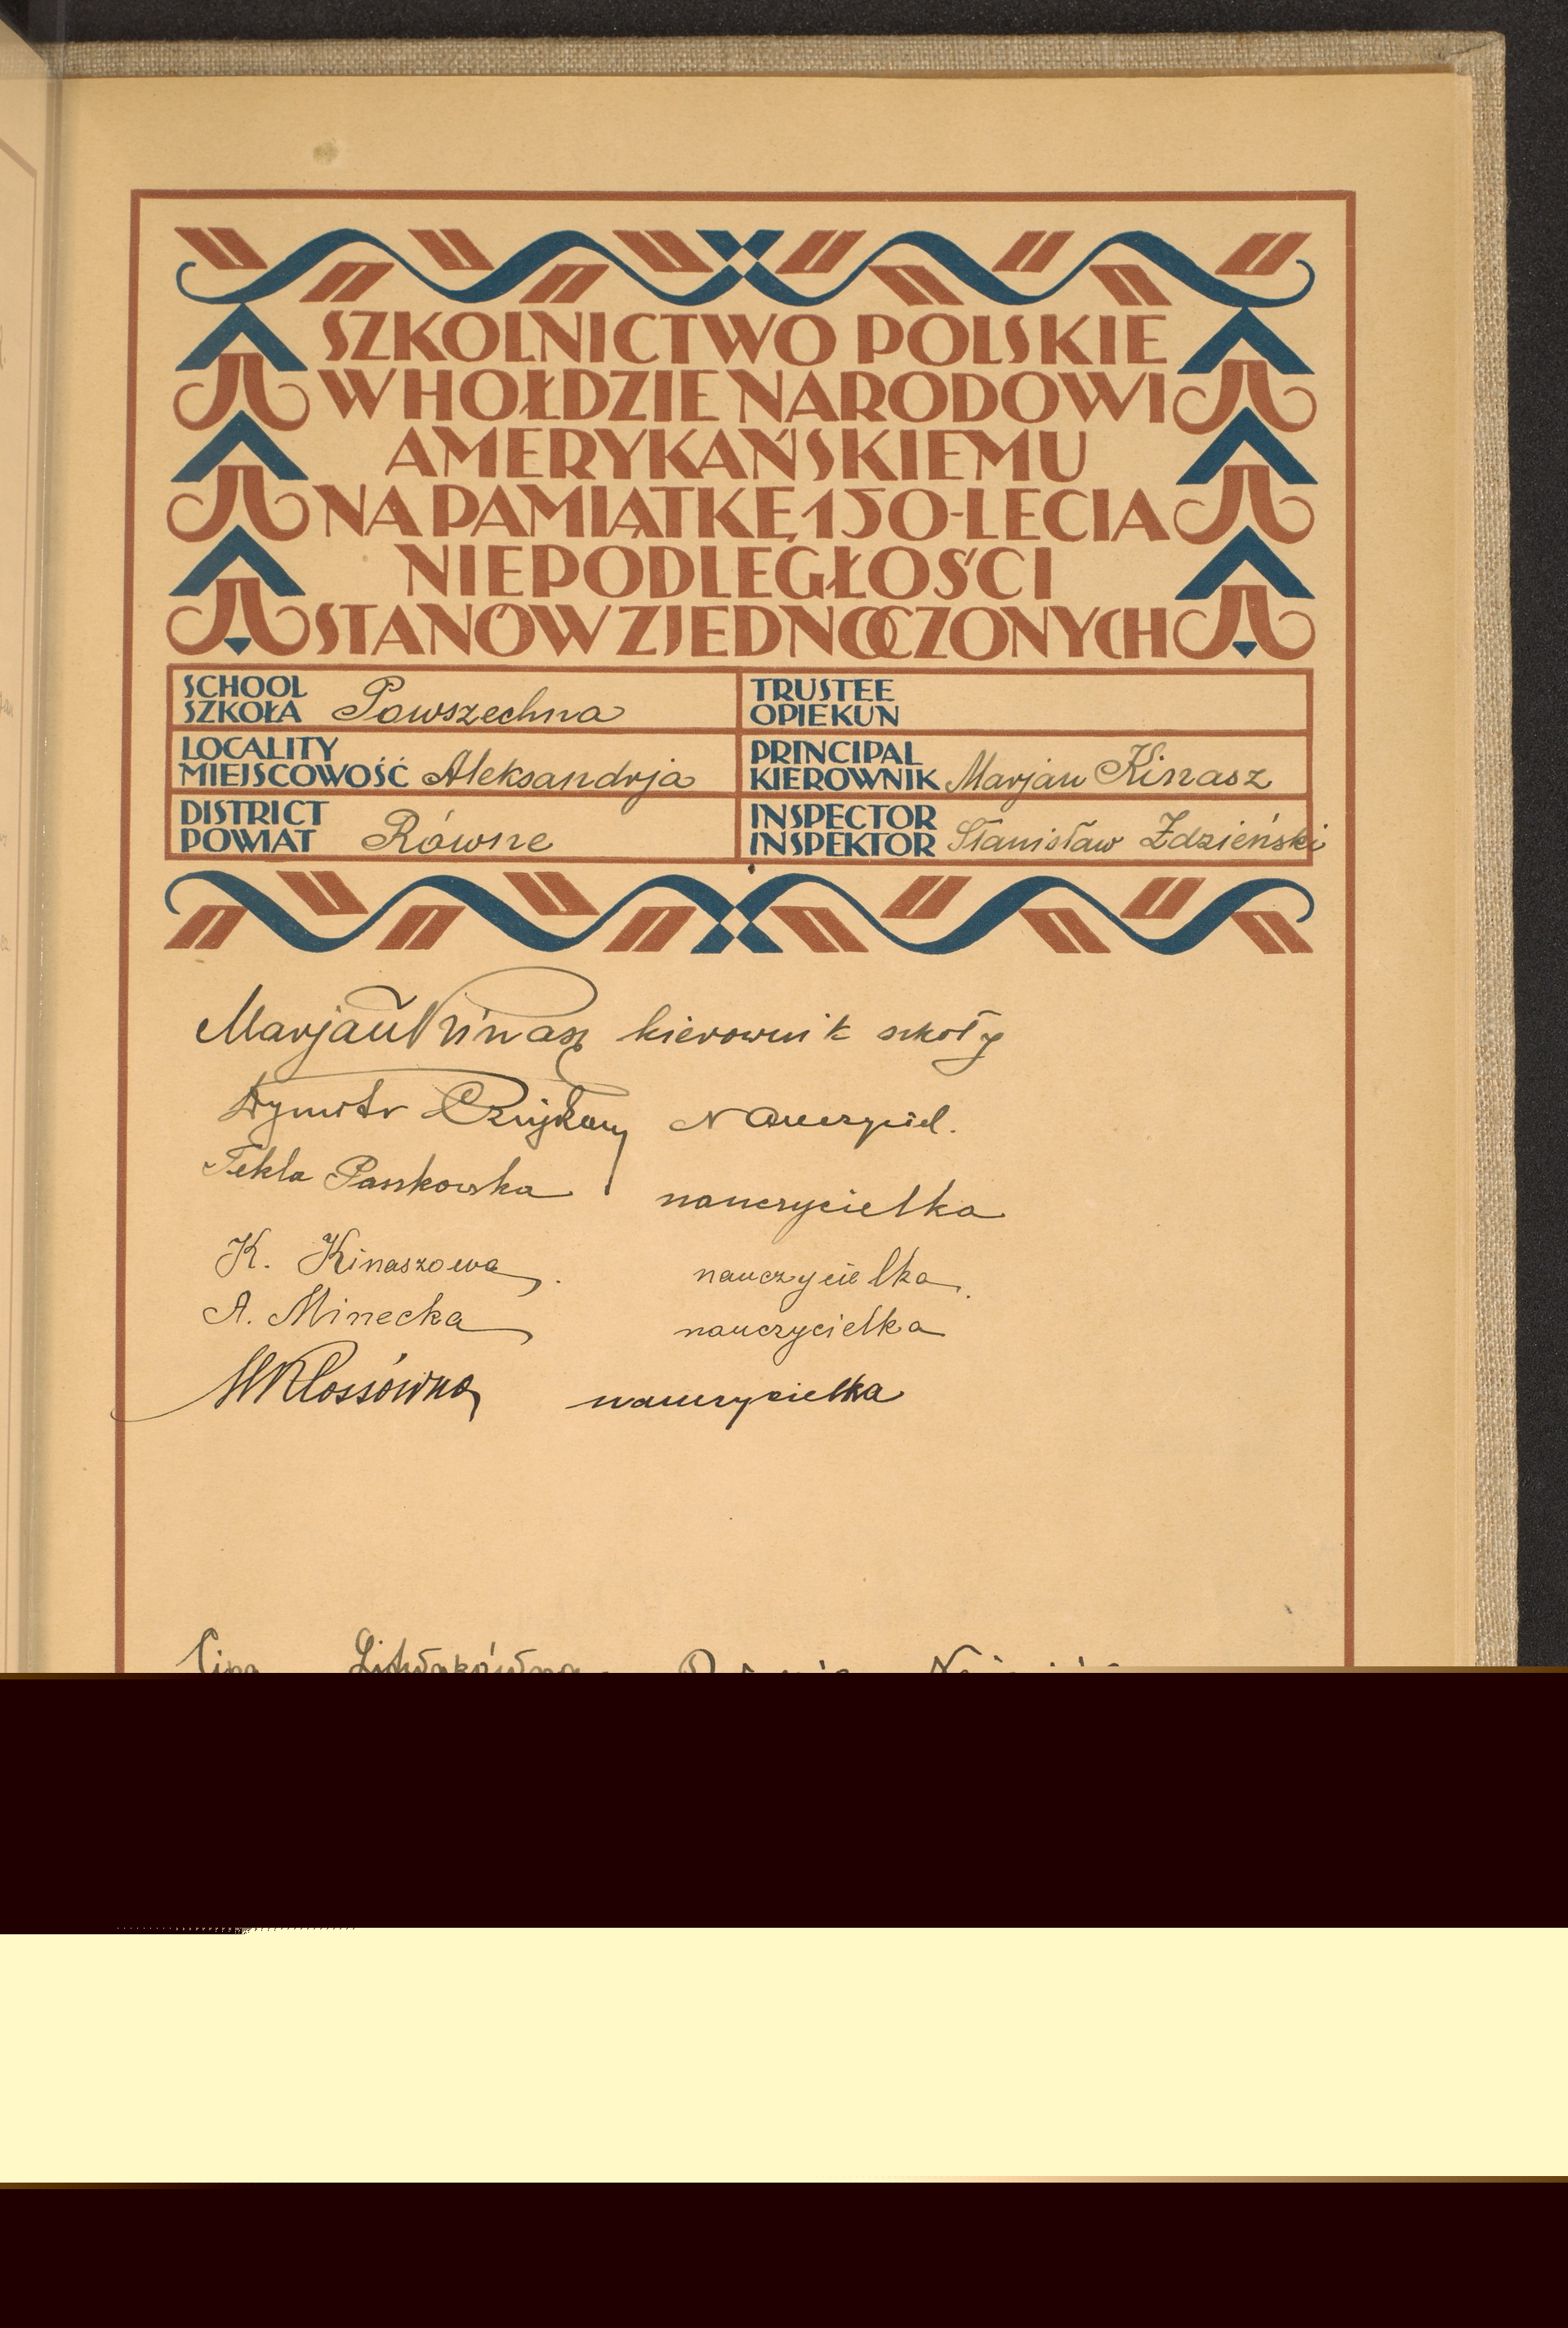 SZKOLNICTWO POLSKIE
W HOŁDZIE NARODOWI
AMERYKAŃSKIEMU
NA PAMIĄTKĘ 150-LECIA
NIEPODLEGŁOŚCI
STANÓW ZJEDNOCZONYCH
SCHOOL
SZKOŁA Powszechna
TRUSTEE
OPIEKUN
LOCALITY
MIEJSCOWOŚĆ Aleksandrja
PRINCIPAL
KIEROWNIK Marjan Kinasz
DISTRICT
POWIAT Równe
INSPECTOR
INSPEKTOR Stanisław Zdzieński
Marjan Kinasz kierownik szkoły
Dymitr Nauczyciel.
Tekla Paszkowska nauczycielka
K. Kinaszowa. nauczycielka.
A. Minecka nauczycielka
Kłossówna nauczycielka